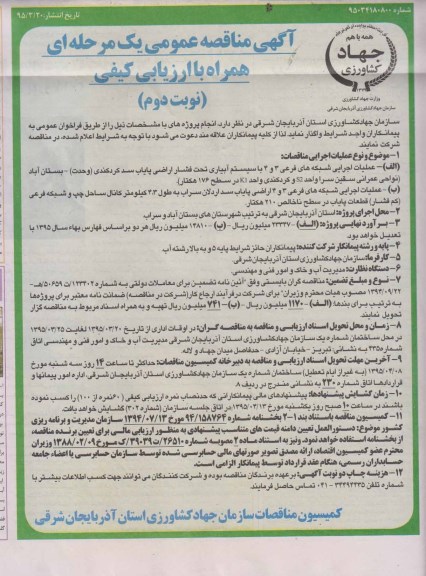 شماره ۹۵۰۳۴۱۸۰۸۰۰
تاریخ انتشار: ۹۵/۳/۲۰
همه با هم
جهاد
کشاورزی
وزارت جهاد کشاورزی
سازمان جهاد کشاورزی آذربایجان شرقی
آگهی مناقصه عمومی یک مرحله ای
همراه با ارزیابی کیفی
(نوبت دوم)
سازمان جهاد کشاورزی استان آذربایجان شرقی در نظر دارد، انجام پروژه های با مشخصات ذیل را از طریق فراخوان عمومی به
پیمانکاران واجد شرایط واگذار نماید. لذا از کلیه پیمانکاران علاقه مند دعوت می شود با توجه به شرایط اعلام شده، در مناقصه
شرکت نمایند.
۱- موضوع و نوع عملیات اجرایی مناقصات:
(الف)- عملیات اجرایی شبکه های فرعی ۳ و ۴ با سیستم آبیاری تحت فشار اراضی پایاب سد کردکندی (وحدت) - بستان آباد
(نواحی عمرانی سقین سرا واحد S2 و کردکندی واحد K1 در سطح ۱۷۶ هکتار).
(ب)- عملیات اجرایی شبکه های فرعی ۳ و ۴ اراضی پایاب سد اردلان سراب به طول ۳.۳ کیلومتر کانال ساحل چپ و شبکه فرعی
(کم فشار) قطعات پایاب در سطح ناخالص ۲۱۰ هکتار.
۲- محل اجرای پروژه: استان آذربایجان شرقی به ترتیب شهرستان های بستان آباد و سراب
۳- برآورد نهایی پروژه: (الف)- ۲۳۳۳۷ میلیون ریال - (ب)- ۱۴۸۱۰ میلیون ریال هر دو براساس فهارس بهاء سال ۱۳۹۵ با
تعدیل خواهد بود.
۴- پایه و رشته پیمانکار شرکت کننده: پیمانکاران حائز شرایط پایه ۵ و به بالا رشته آب
۵- کارفرما: سازمان جهاد کشاورزی استان آذربایجان شرقی.
۶- دستگاه نظارت: مدیریت آب و خاک و امور فنی و مهندسی.
۷- نوع و مبلغ تضمین: مناقصه گران بایستی وفق "آئین نامه تضمین برای معاملات دولتی به شماره ۱۲۳۴۰۲/ت۵۰۶۵۹هـ-
۱۳۹۴/۰۹/۲۲ مصوب هیات محترم وزیران" برای شرکت در فرآیند ارجاع کار(شرکت در مناقصه) ضمانت نامه معتبر برای پروژه ها
به ترتیب برای بندها (الف)- ۱۱۷۰ میلیون ریال - (ب)- ۷۴۱ میلیون ریال تهیه و به همراه اسناد مربوط به مناقصه گزار
تحویل نمایند.
۸- زمان و محل تحویل اسناد ارزیابی و مناقصه به مناقصه گران: در اوقات اداری از تاریخ ۱۳۹۵/۰۳/۲۰ لغایت ۱۳۹۵/۰۳/۲۵
در محل ساختمان شماره یک سازمان جهاد کشاورزی استان آذربایجان شرقی مدیریت آب و خاک و امور فنی و مهندسی اتاق
شماره ۲۳۵ به نشانی: تبریز - خیابان آزادی - حدفاصل میدان جهاد و لاله.
۹- آخرین مهلت تحویل اسناد ارزیابی و مناقصه به دبیرخانه کمیسیون مناقصات: حداکثر تا ساعت ۱۴ روز سه شنبه مورخ
۱۳۹۵/۰۴/۰۸ (به غیر از ایام تعطیل) ساختمان شماره یک سازمان جهاد کشاورزی استان آذربایجان شرقی، اداره امور پیمانها و
قراردادها اتاق شماره ۲۳۰ به نشانی مندرج در ردیف ۸
۱۰- زمان گشایش پیشنهادها: پیشنهادهای مالی پیمانکارانی که حدنصاب نمره ارزیابی کیفی (۶۰نمره از ۱۰۰) را کسب نموده
باشند در ساعت ۱۰ صبح روز یکشنبه مورخ ۱۳۹۵/۰۴/۱۳ در اتاق جلسه سازمان (شماره ۳۰۲) گشایش خواهد یافت.
۱۱- کمیسیون مناقصه به استناد بند ۱-۲ بخشنامه شماره ۹۴/۱۵۸۷۶۴ مورخ ۱۳۹۴/۰۷/۱۳ سازمان مدیریت و برنامه ریزی
کشور موضوع: دستورالعمل تعیین دامنه قیمت های متناسب پیشنهادی به منظور ارزیابی مالی برای تعیین برنده مناقصه،
از بخشنامه استفاده خواهد نمود. ونیز به استناد ماده ۲ مصوبه شماره ۲۶۵۱۰/ت۳۹۰۳۹ک مورخ ۱۳۸۸/۰۲/۰۹ وزیران
محترم عضو کمیسیون اقتصاد، ارائه مصدق صورتهای مالی حسابرسی شده توسط سازمان حسابرسی یا اعضاء جامعه
حسابداران رسمی، هنگام عقد قرارداد توسط پیمانکار الزامی است.
۱۲- هزینه چاپ دو نوبت آگهی: بر عهده برندگان مناقصه بوده و شرکت کنندگان می توانند جهت کسب اطلاعات بیشتر با
شماره تلفن ۳۳۳۹۲۳۳۵ - ۰۴۱ تماس حاصل فرمایند.
کمیسیون مناقصات سازمان جهاد کشاورزی استان آذربایجان شرقی